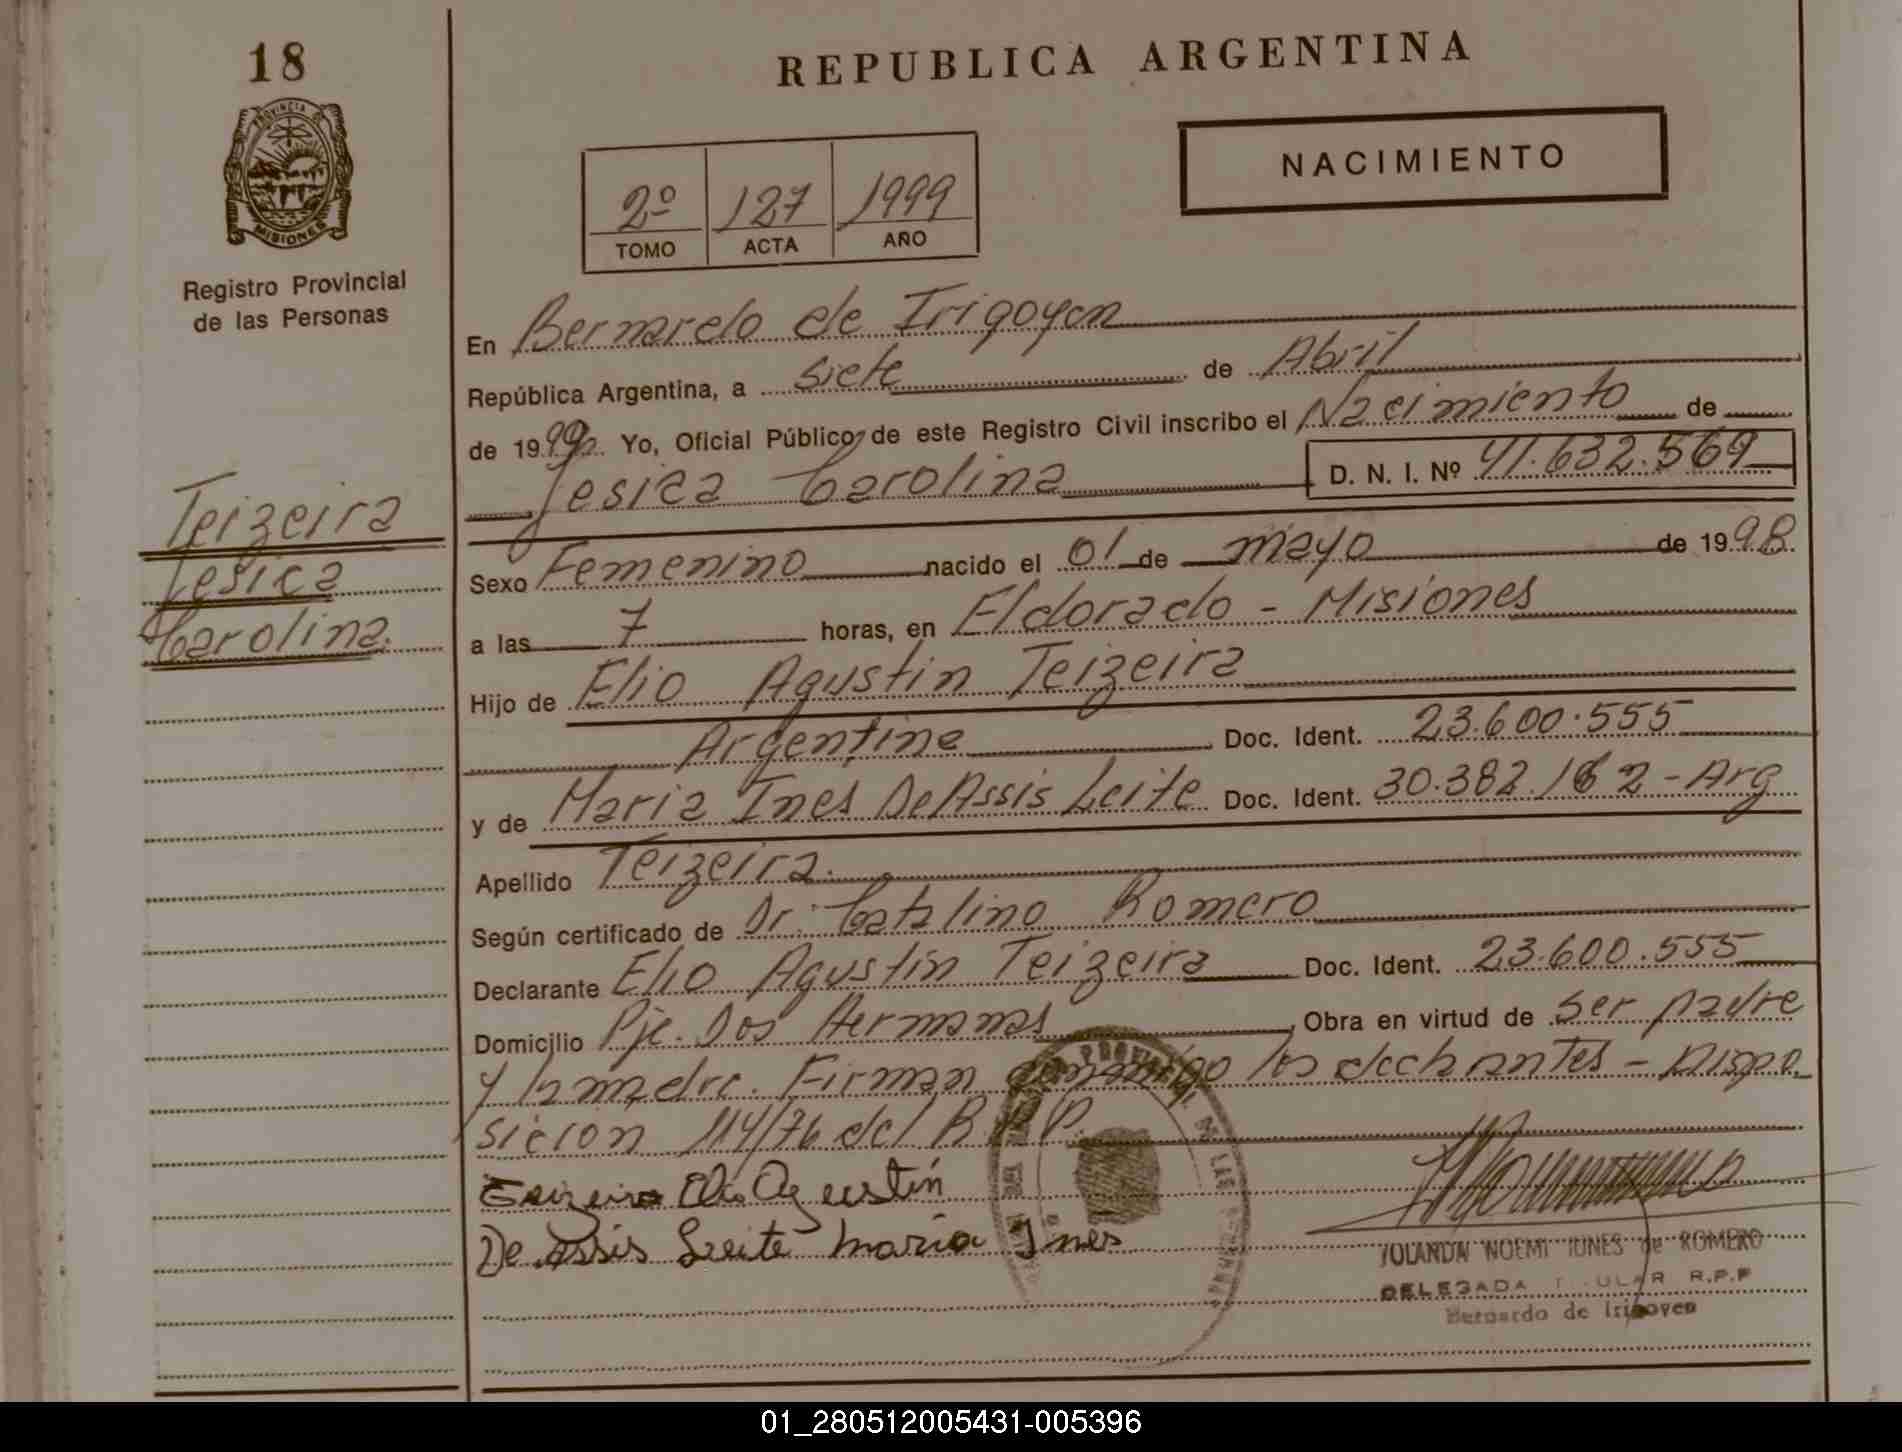 18
REPUBLICA ARGENTINA
PROVINCIA DE
MISIONES
NACIMIENTO
2º 127 1999
TOMO ACTA AÑO
Registro Provincial
de las Personas
En Bernardo de Irigoyen
República Argentina, a siete de Abril
de 1999. Yo, Oficial Público de este Registro Civil inscribo el Nacimiento de
Jesica Carolina D. N. I. Nº 41.632.569
Teizeira
Jesica
Carolina.
Sexo Femenino nacido el 01 de mayo de 1998
a las 7 horas, en Eldorado - Misiones
Hijo de Elio Agustin Teizeira
Argentina Doc. Ident. 23.600.555
y de Maria Ines De Assis Leite Doc. Ident. 30.382.162 - Arg
Apellido Teizeira.
Según certificado de Dr. Catalino Romero
Declarante Elio Agustín Teizeira Doc. Ident. 23.600.555
Domicilio Pje. Dos Hermanas, Obra en virtud de ser padre
y la madre. Firman conmigo los declarantes - Dispo
sicion 114/76 del R.P.P.
Teizeira Elio Agustín
De Assis Leite María Ines
YOLANDA NOEMI IUNES de ROMERO
DELEGADA TITULAR R.P.P
Bernardo de Irigoyen
01_280512005431-005396